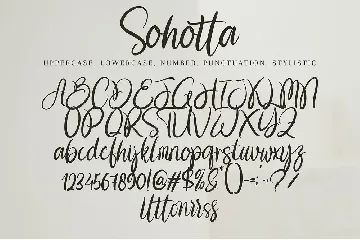 Sohotta
UPPERCASE, LOWERCASE, NUMBER, PUNCTUATION, STYLISTIC
ABCDEFGHIJKLMN
OPQRSTUVWXYZ
abcdefghijklmnopqrstuvwxyz
1234567890!@#$%&